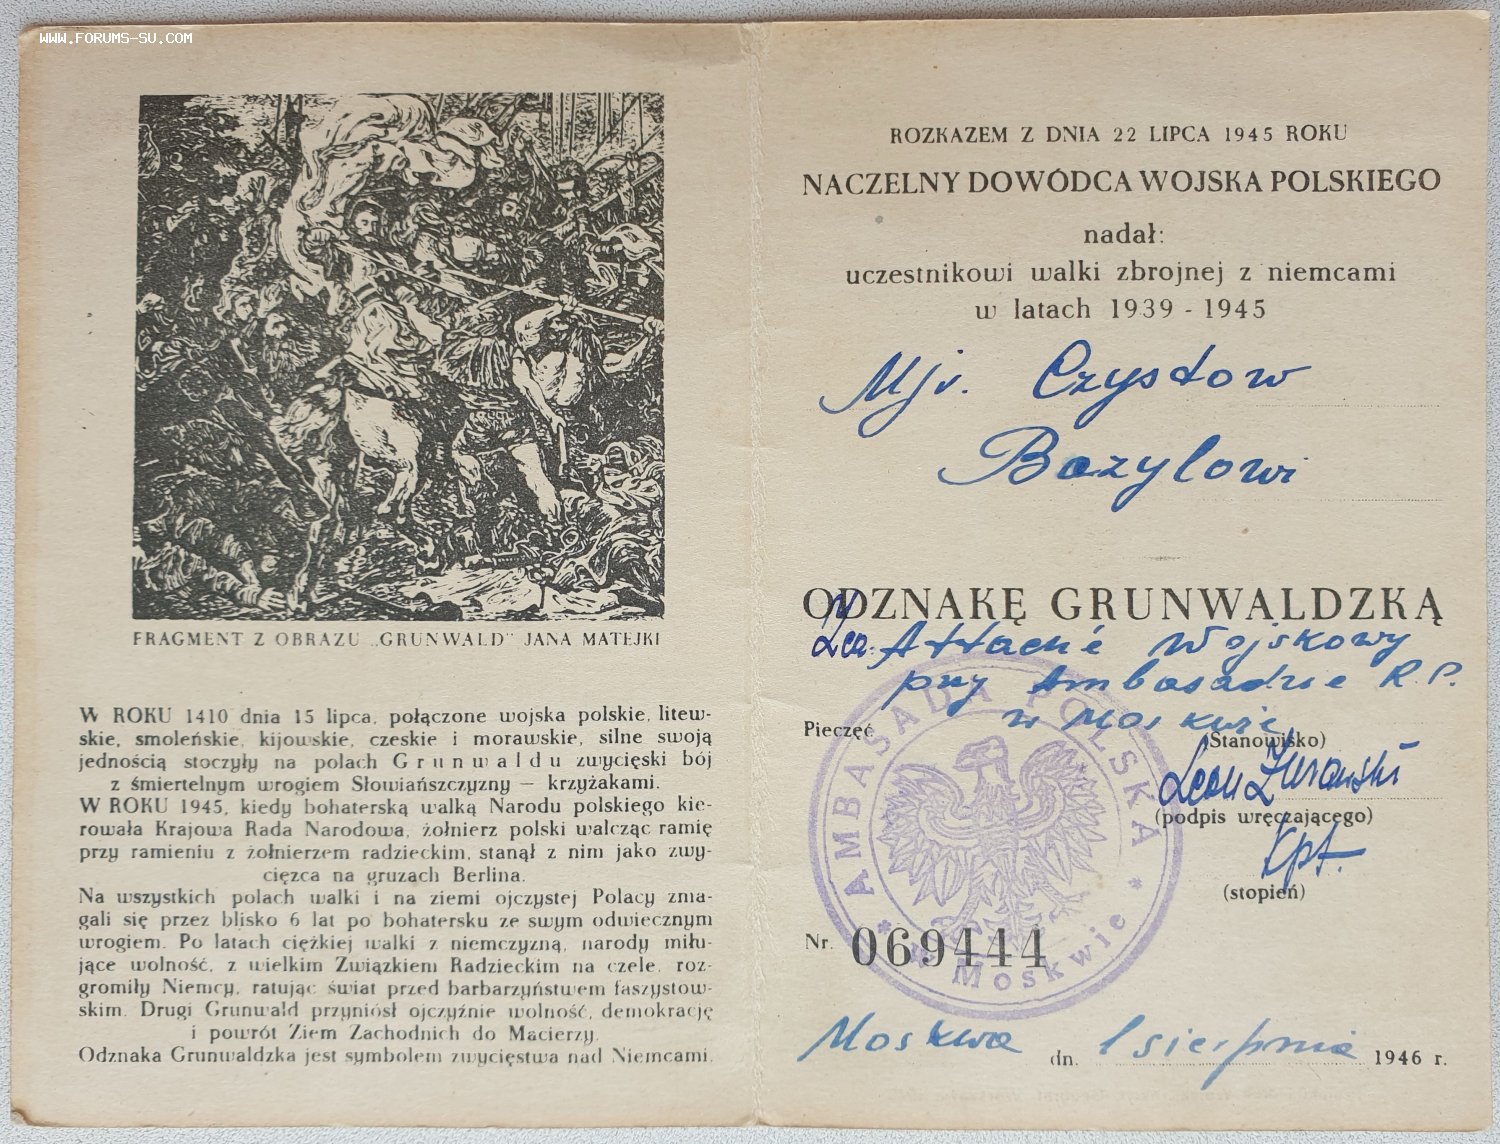 WWW.FORUMS-SU.COM
FRAGMENT Z OBRAZU „GRUNWALD” JANA MATEJKI
W ROKU 1410 dnia 15 lipca, połączone wojska polskie, litew-
skie, smoleńskie, kijowskie, czeskie i morawskie, silne swoją
jednością stoczyły na polach Grunwaldu zwycięski bój
z śmiertelnym wrogiem Słowiańszczyzny — krzyżakami.
W ROKU 1945, kiedy bohaterską walką Narodu polskiego kie-
rowała Krajowa Rada Narodowa, żołnierz polski walcząc ramię
przy ramieniu z żołnierzem radzieckim, stanął z nim jako zwy-
cięzca na gruzach Berlina.
Na wszystkich polach walki i na ziemi ojczystej Polacy zma-
gali się przez blisko 6 lat po bohatersku ze swym odwiecznym
wrogiem. Po latach ciężkiej walki z niemczyzną, narody miłu-
jące wolność, z wielkim Związkiem Radzieckim na czele, roz-
gromiły Niemcy, ratując świat przed barbarzyństwem faszystow-
skim. Drugi Grunwald przyniósł ojczyźnie wolność, demokrację
i powrót Ziem Zachodnich do Macierzy.
Odznaka Grunwaldzka jest symbolem zwycięstwa nad Niemcami.
ROZKAZEM Z DNIA 22 LIPCA 1945 ROKU
NACZELNY DOWÓDCA WOJSKA POLSKIEGO
nadał:
uczestnikowi walki zbrojnej z niemcami
w latach 1939 - 1945
Mjr. Czystow
Bazylowi
ODZNAKĘ GRUNWALDZKĄ
Attaché Wojskowy
przy Ambasadzie R.P.
w Moskwie
Pieczęć
(Stanowisko)
Leon Żurawski
(podpis wręczającego)
Kpt.
(stopień)
AMBASADA POLSKA
* w Moskwie *
Nr. 069444
Moskwa dn. 1 sierpnia 1946 r.